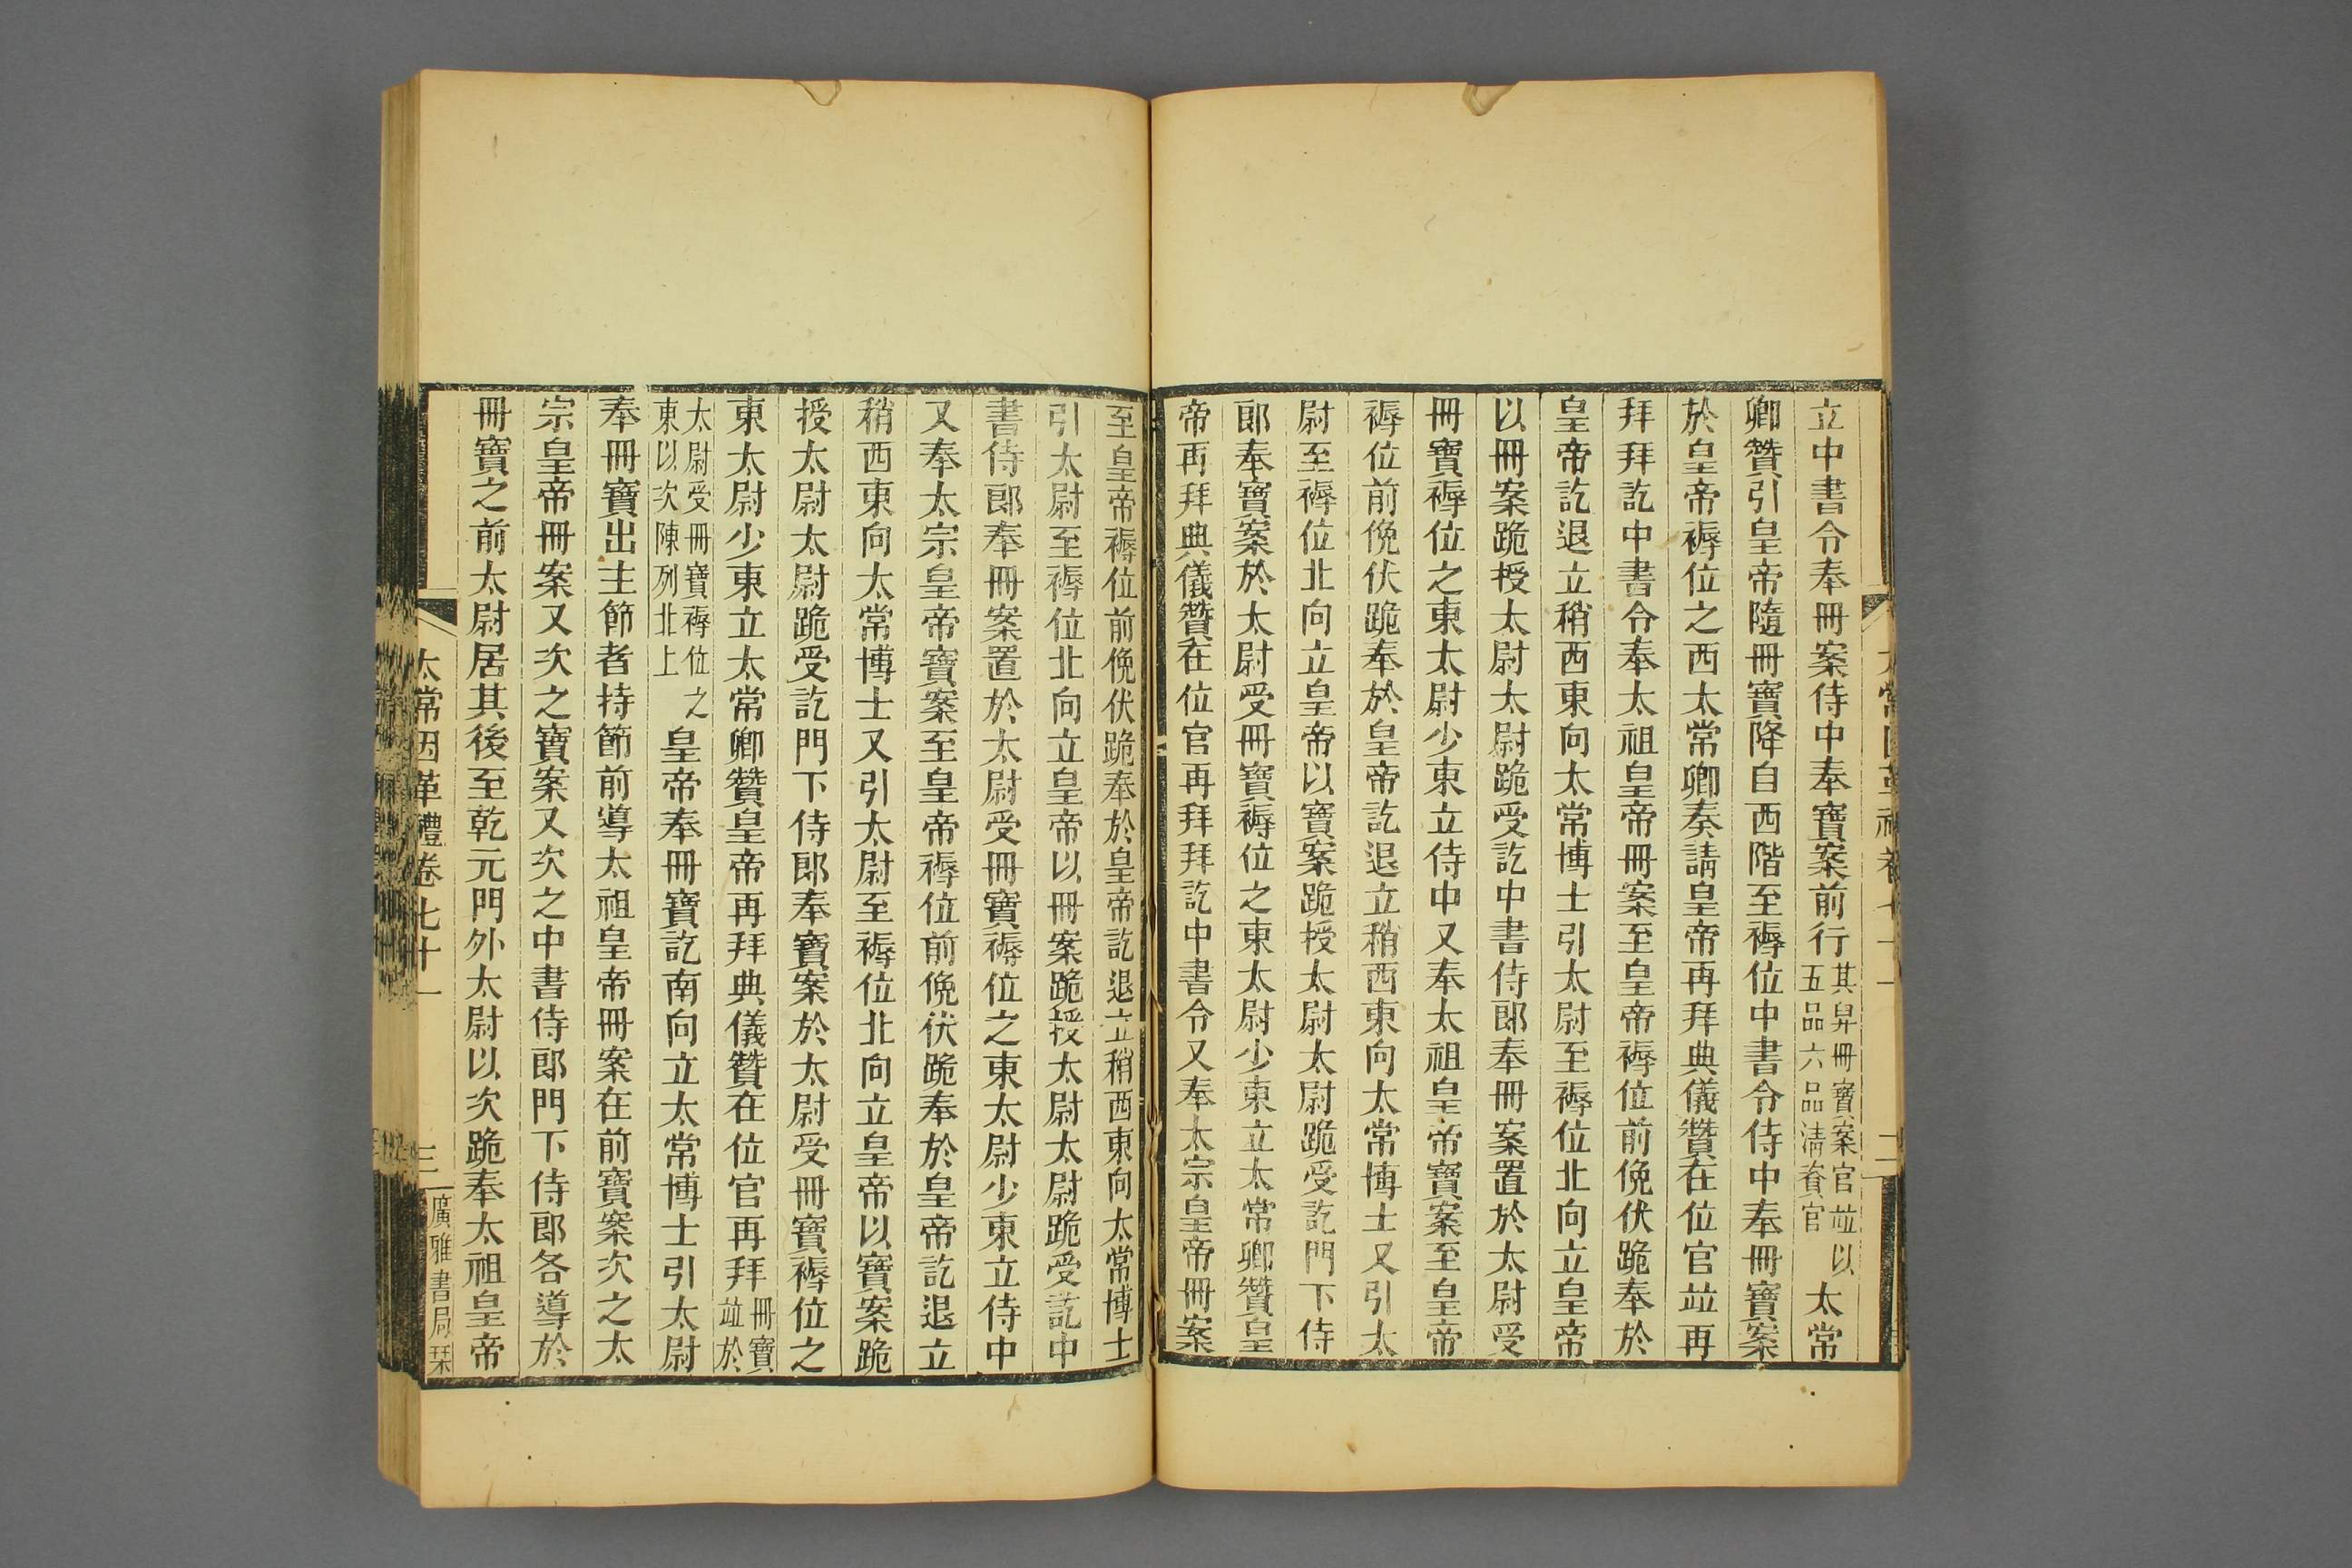 立中書令奉冊案侍中奉寶案前行其舁冊寶案官竝以五品六品淸資官太常
卿贊引皇帝隨冊寶降自西階至褥位中書令侍中奉冊寶案
於皇帝褥位之西太常卿奏請皇帝再拜典儀贊在位官竝再
拜拜訖中書令奉太祖皇帝冊案至皇帝褥位前俛伏跪奉於
皇帝訖退立稍西東向太常博士引太尉至褥位北向立皇帝
以冊案跪授太尉太尉跪受訖中書侍郎奉冊案置於太尉受
冊寶褥位之東太尉少東立侍中又奉太祖皇帝寶案至皇帝
褥位前俛伏跪奉於皇帝訖退立稍西東向太常博士又引太
尉至褥位北向立皇帝以寶案跪授太尉太尉跪受訖門下侍
郎奉寶案於太尉受冊寶褥位之東太尉少東立太常卿贊皇
帝再拜典儀贊在位官再拜拜訖中書令又奉太宗皇帝冊案
至皇帝褥位前俛伏跪奉於皇帝訖退立稍西東向太常博士
引太尉至褥位北向立皇帝以冊案跪授太尉太尉跪受訖中
書侍郎奉冊案置於太尉受冊寶褥位之東太尉少東立侍中
又奉太宗皇帝寶案至皇帝褥位前俛伏跪奉於皇帝訖退立
稍西東向太常博士又引太尉至褥位北向立皇帝以寶案跪
授太尉太尉跪受訖門下侍郎奉寶案於太尉受冊寶褥位之
東太尉少東立太常卿贊皇帝再拜典儀贊在位官再拜冊寶竝於
太尉受冊寶褥位之東以次陳列北上皇帝奉冊寶訖南向立太常博士引太尉
奉冊寶出主節者持節前導太祖皇帝冊案在前寶案次之太
宗皇帝冊案又次之寶案又次之中書侍郎門下侍郎各導於
冊寶之前太尉居其後至乾元門外太尉以次跪奉太祖皇帝
太常因革禮卷七十一
三
廣雅書局栞